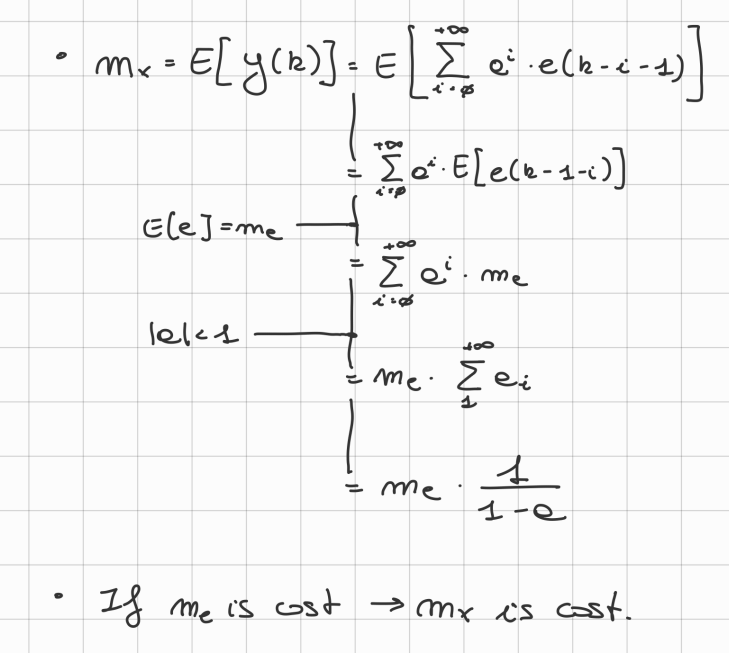 • mₓ = E[y(k)] = E[∑_{i=0}^{+∞} aⁱ · e(k-i-1)]
= ∑_{i=0}^{+∞} aⁱ · E[e(k-1-i)]
E[e] = mₑ
= ∑_{i=0}^{+∞} aⁱ · mₑ
|a| < 1
= mₑ · ∑_{1}^{+∞} aᵢ
= mₑ · 1/(1-a)
• If mₑ is cost → mₓ is cost.